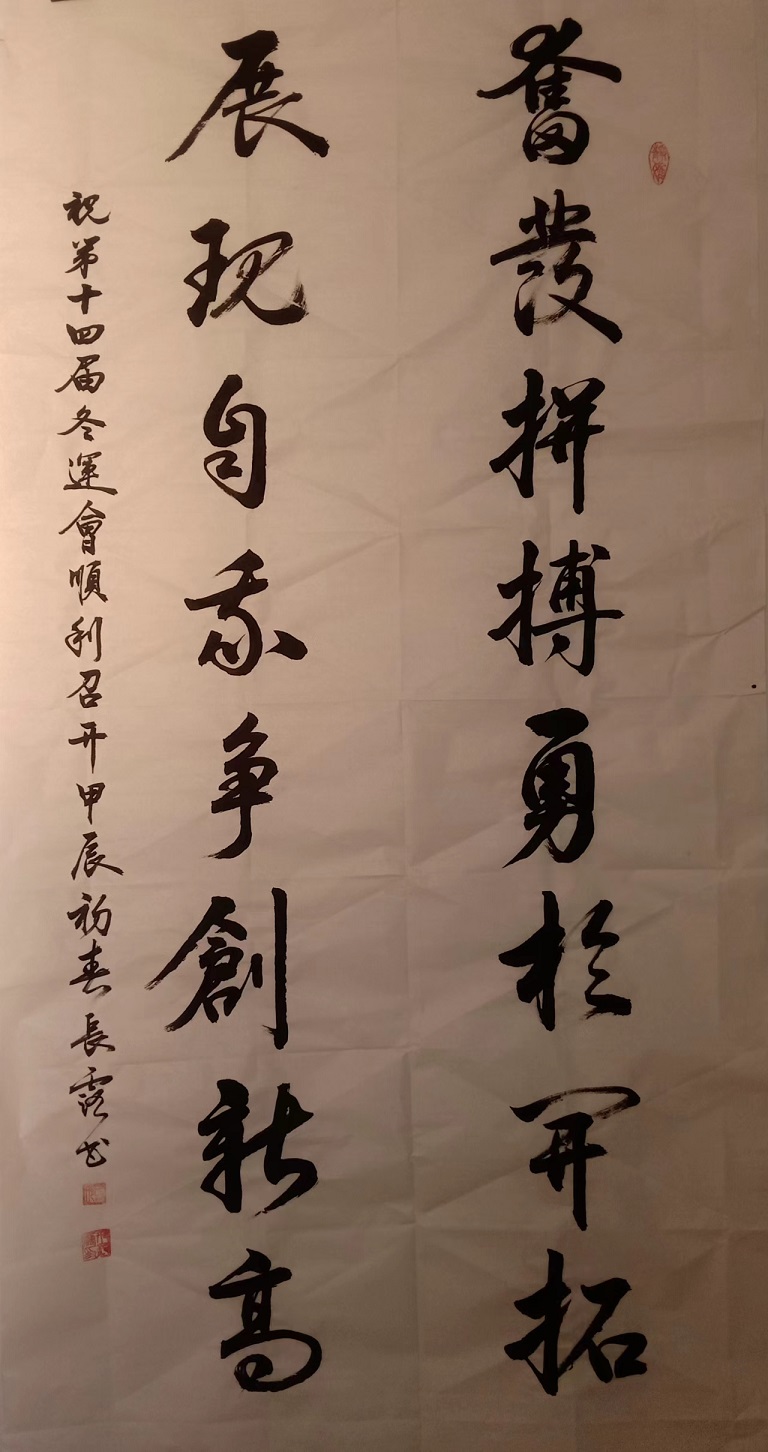 奮發拼搏勇於開拓
展現自我争創新高
祝第十四届冬運會順利召開甲辰初春長露书